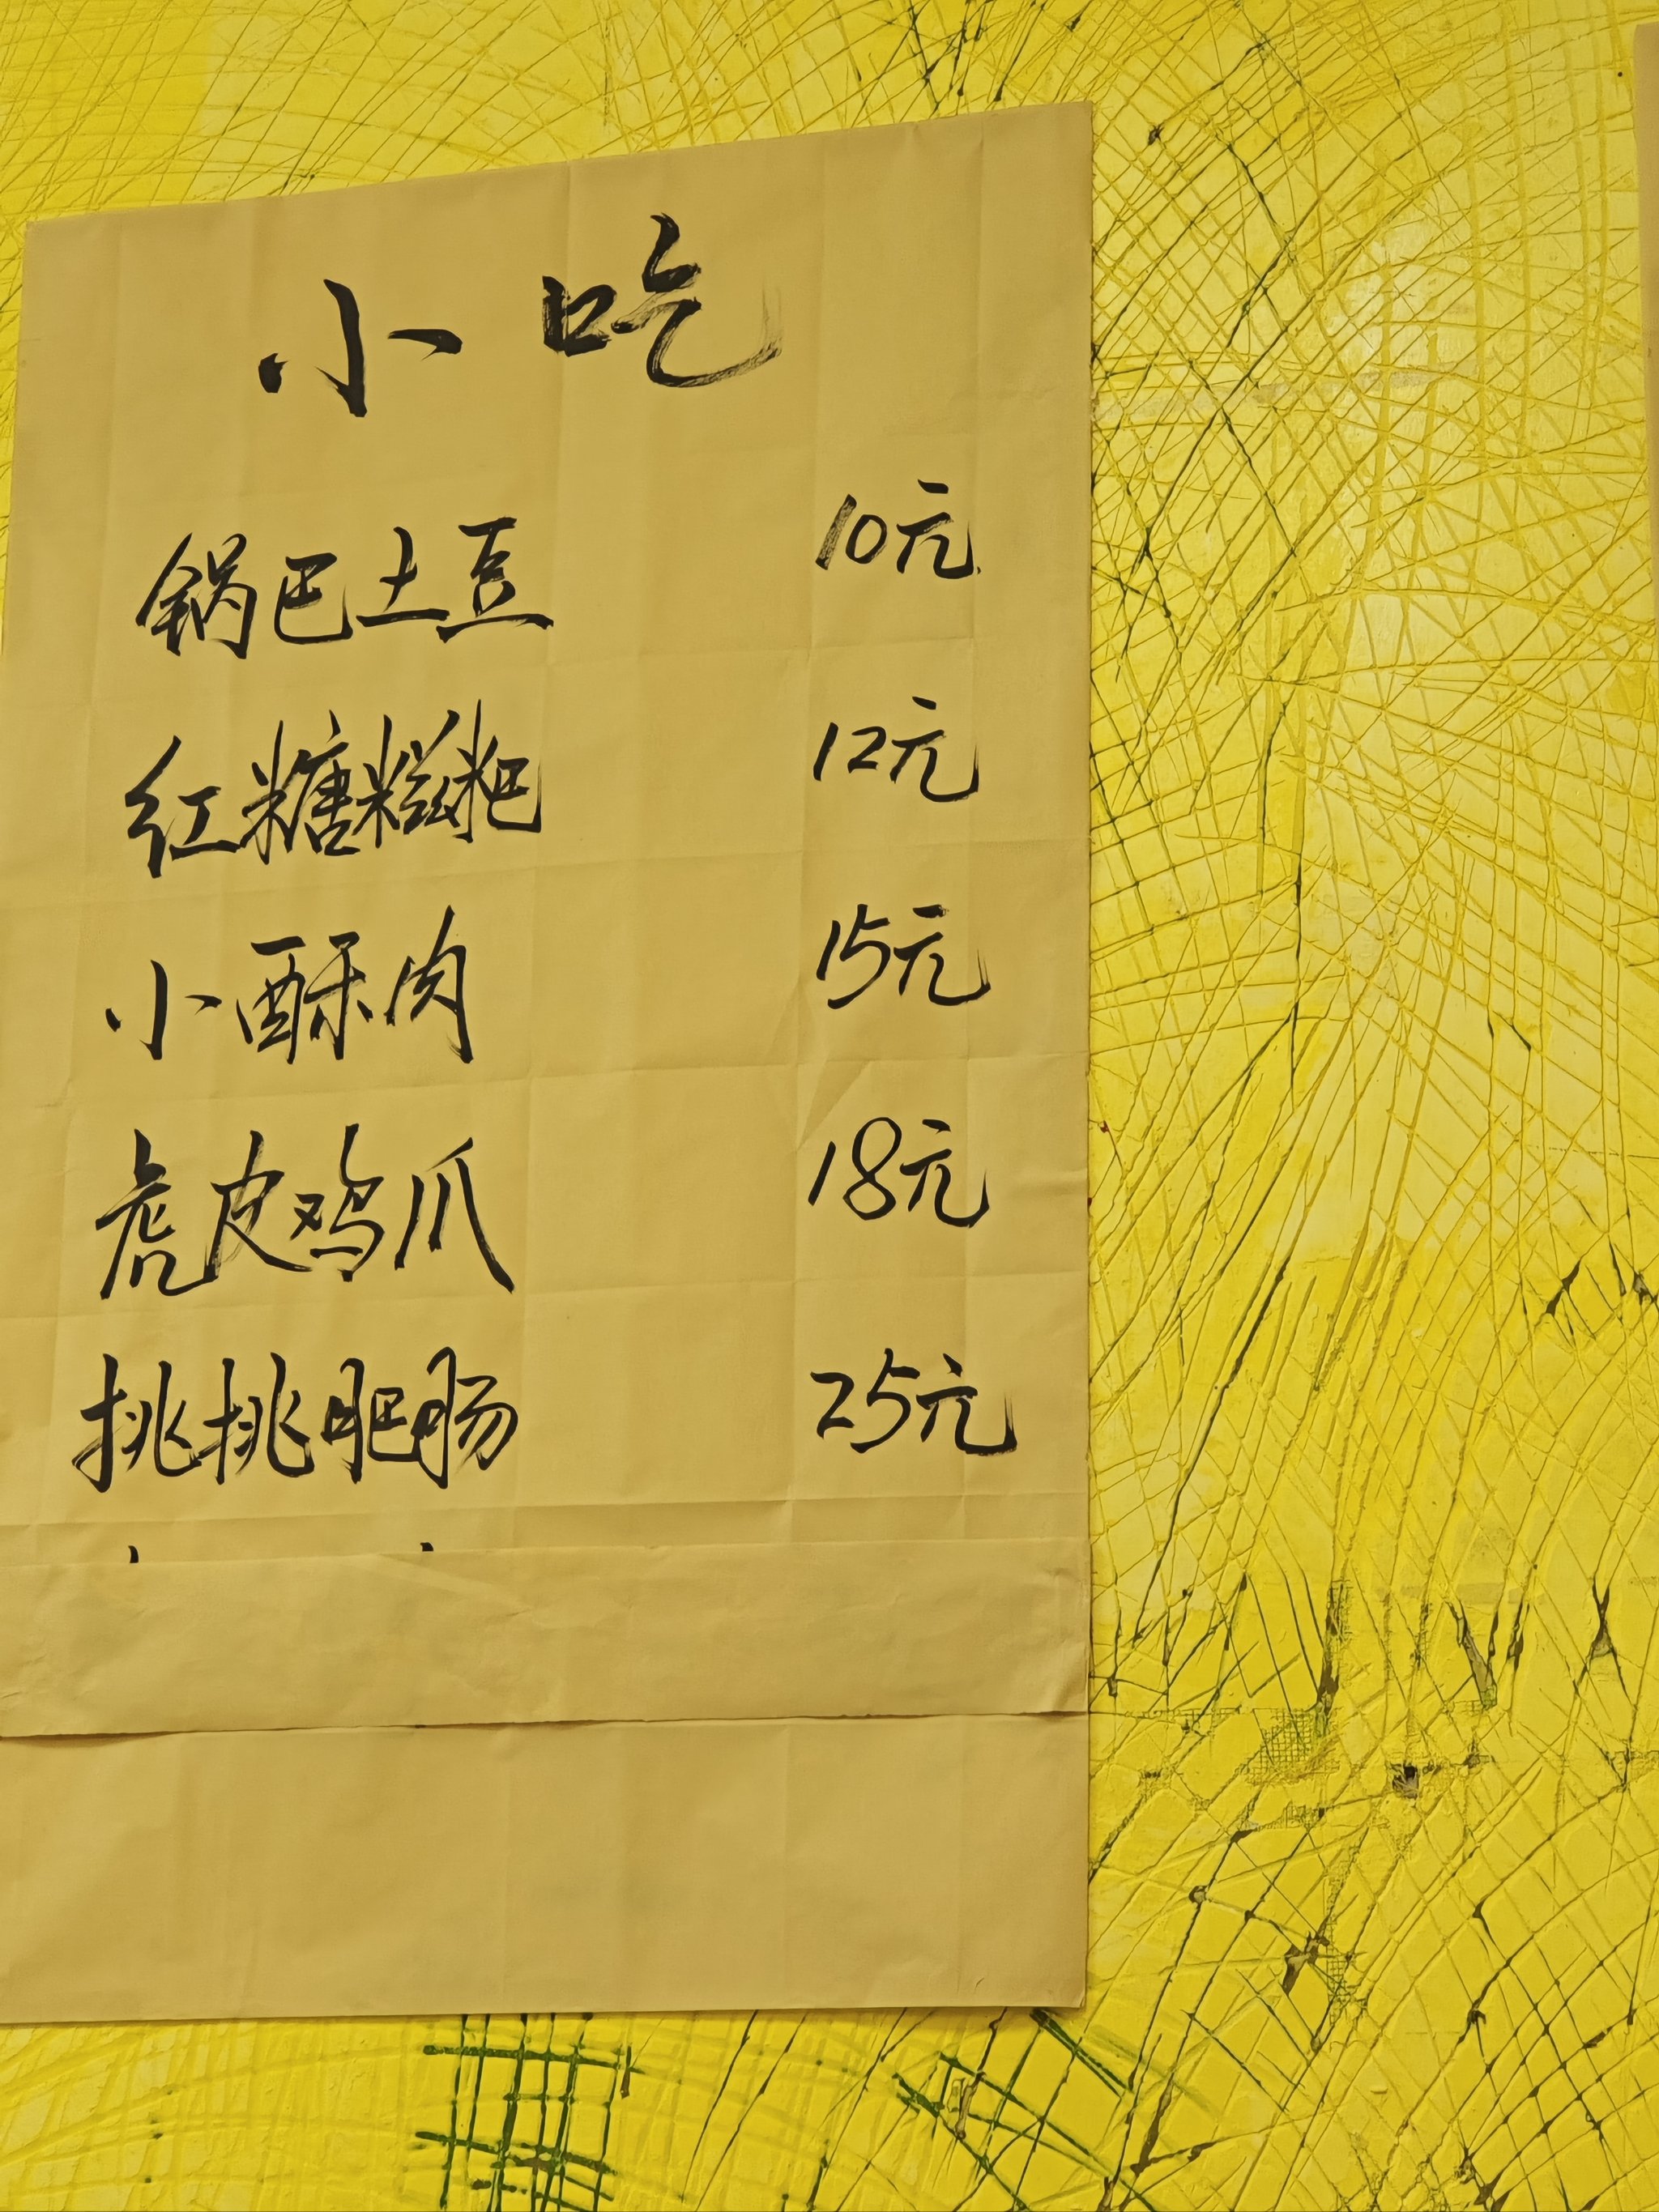 小吃
锅巴土豆 10元
红糖糍粑 12元
小酥肉 15元
虎皮鸡爪 18元
挑挑肥肠 25元